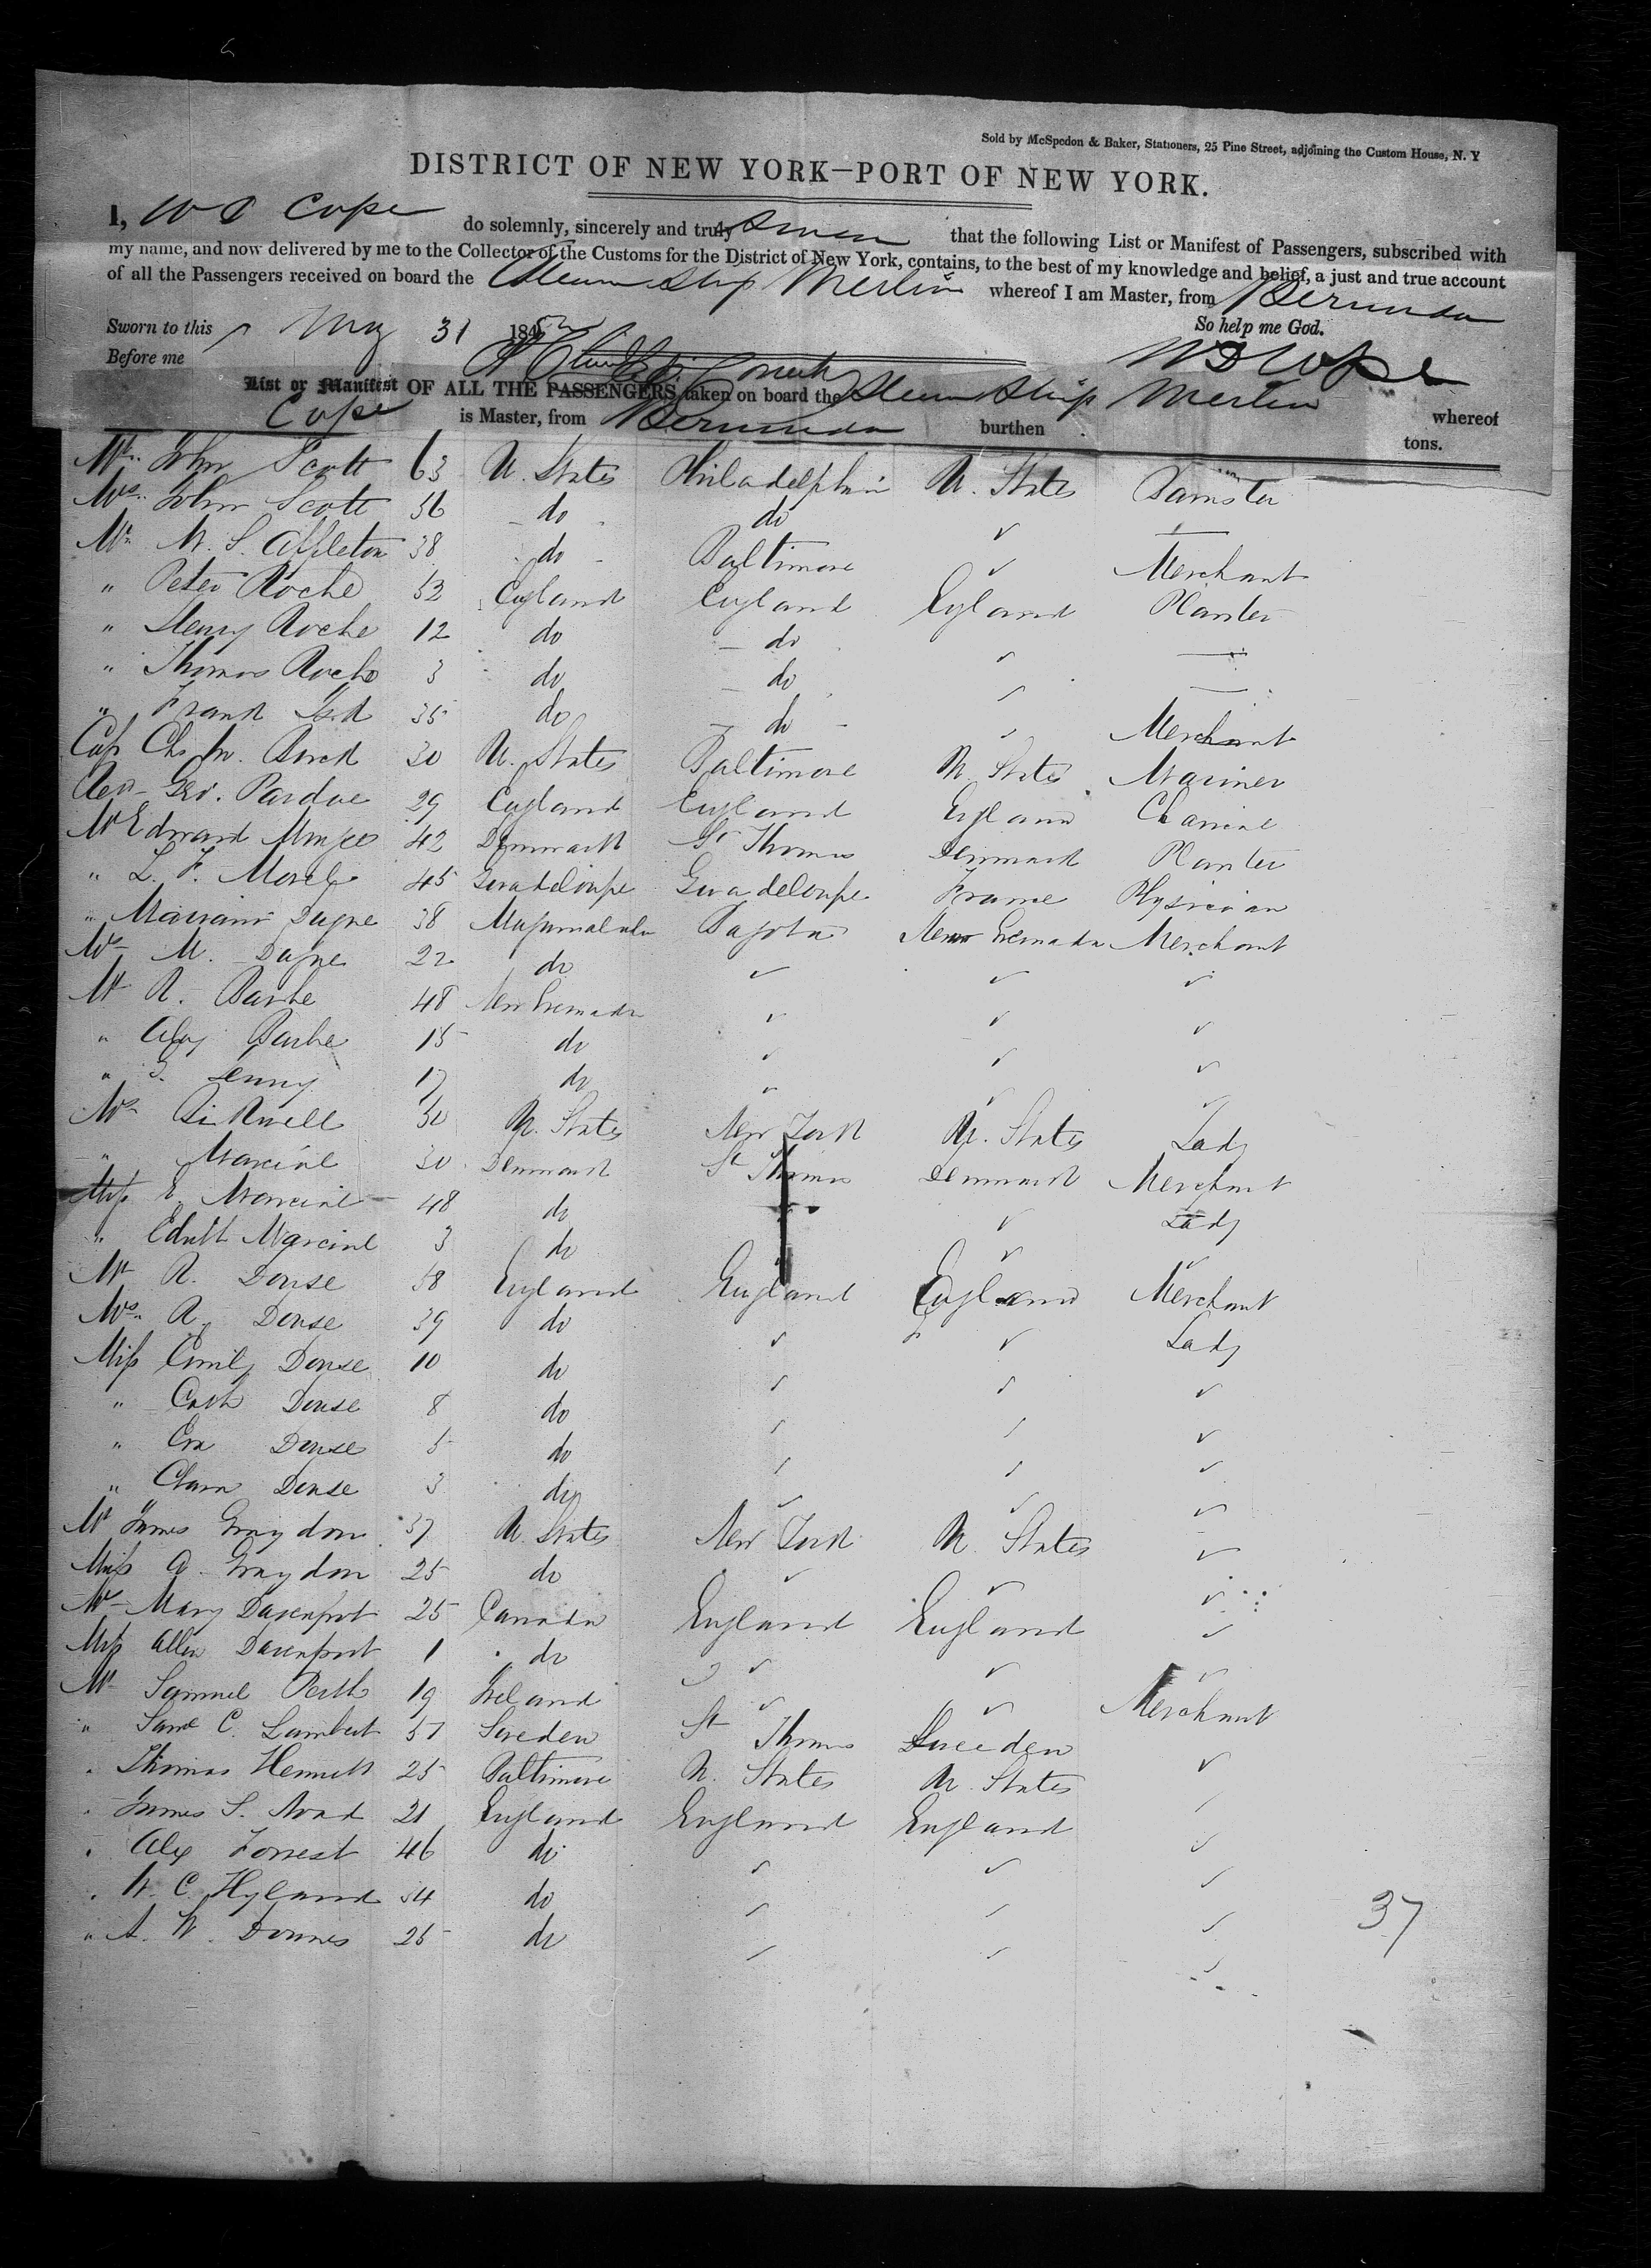 Sold by McSpedon & Baker, Stationers, 25 Pine Street, adjoining the Custom House, N. Y
DISTRICT OF NEW YORK—PORT OF NEW YORK.
I, W D Cope do solemnly, sincerely and truly swear that the following List or Manifest of Passengers, subscribed with
my name, and now delivered by me to the Collector of the Customs for the District of New York, contains, to the best of my knowledge and belief, a just and true account
of all the Passengers received on board the Steam Ship Merlin whereof I am Master, from Bermuda
Sworn to this May 31 185 So help me God.
Before me W D Cope
List or Manifest OF ALL THE PASSENGERS taken on board the Steam Ship Merlin whereof
Cope is Master, from Bermuda burthen tons.
Mr. John Scott 63 U. States Philadelphia U. States
Mrs. John Scott 36 do do ✓ —
Mr W. S. Appleton 38 do Baltimore ✓ Merchant
" Peter Roche 52 England England England Planter
" Henry Roche 12 do do ✓ —
" Thomas Roche 3 do do ✓ —
" Frank 35 do do ✓ Merchant
Cap Chs W. 30 U. States Baltimore U. States Mariner
Rev Geo. Pardoe 29 England England England
Mr Edward 42 Denmark St Thomas Denmark Planter
" L. F. 45 Guadeloupe Guadeloupe France Physician
" 38 Bagota New Grenada Merchant
Mrs M. 22 do ✓ ✓ ✓
Mr R. 48 New Grenada ✓ ✓ ✓
" 15 do ✓ ✓ ✓
" 17 do ✓ ✓ ✓
Mrs 30 U. States New York U. States Lady
" 30 Denmark St Thomas Denmark Merchant
Miss E. 48 do ✓ Lady
" 3 do ✓ ✓
Mr R. Douse 58 England England England Merchant
Mrs. R. Douse 39 do ✓ ✓ Lady
Miss Emily Douse 10 do ✓ ✓ ✓
" Cath Douse 8 do ✓ ✓ ✓
" Douse 5 do ✓ ✓ ✓
" Clara Douse 3 do ✓ ✓ ✓
Mr James Graydon 37 U. States New York U. States ✓
Miss A Graydon 25 do ✓ ✓ ✓
Mrs Mary Davenport 25 Canada England England ✓
Miss Davenport 1 do ✓ ✓ ✓
Mr Samuel 19 Ireland ✓ ✓ Merchant
" C. Lambert 57 Sweden St Thomas Sweeden ✓
" Thomas 25 Baltimore U. States U. States ✓
" James S. 21 England England England ✓
" Alex Forrest 46 do ✓ ✓ ✓
" W. C. Hyland 54 do ✓ ✓ ✓
" A. W. 25 do ✓ ✓ ✓
37